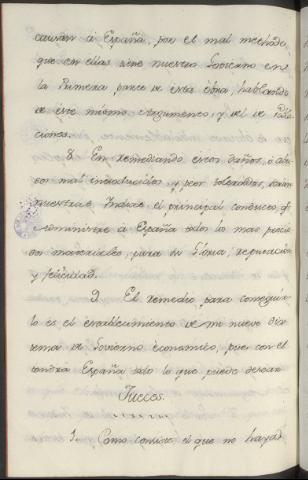 causan à España, por el mal methodo
que en ellas tiene nuestro Govierno en
la Primera parte de esta obra, hablando
de este mismo argumento, y de
8. En remediando estos daños, ò abu-
sos mal introducidos, y peor tolerados, seran
nuestras Indias el principal conducto, qe
subministre à España todo lo mas precio-
so materiales, para su Gloria, reputacion
y felicidad.
9. El remedio para conseguir-
lo es el establecimiento de mi nuevo Sis-
tema de Govierno economico, pues con el
tendra España todo lo que puede desear.
1. Como consiste, el que no haya